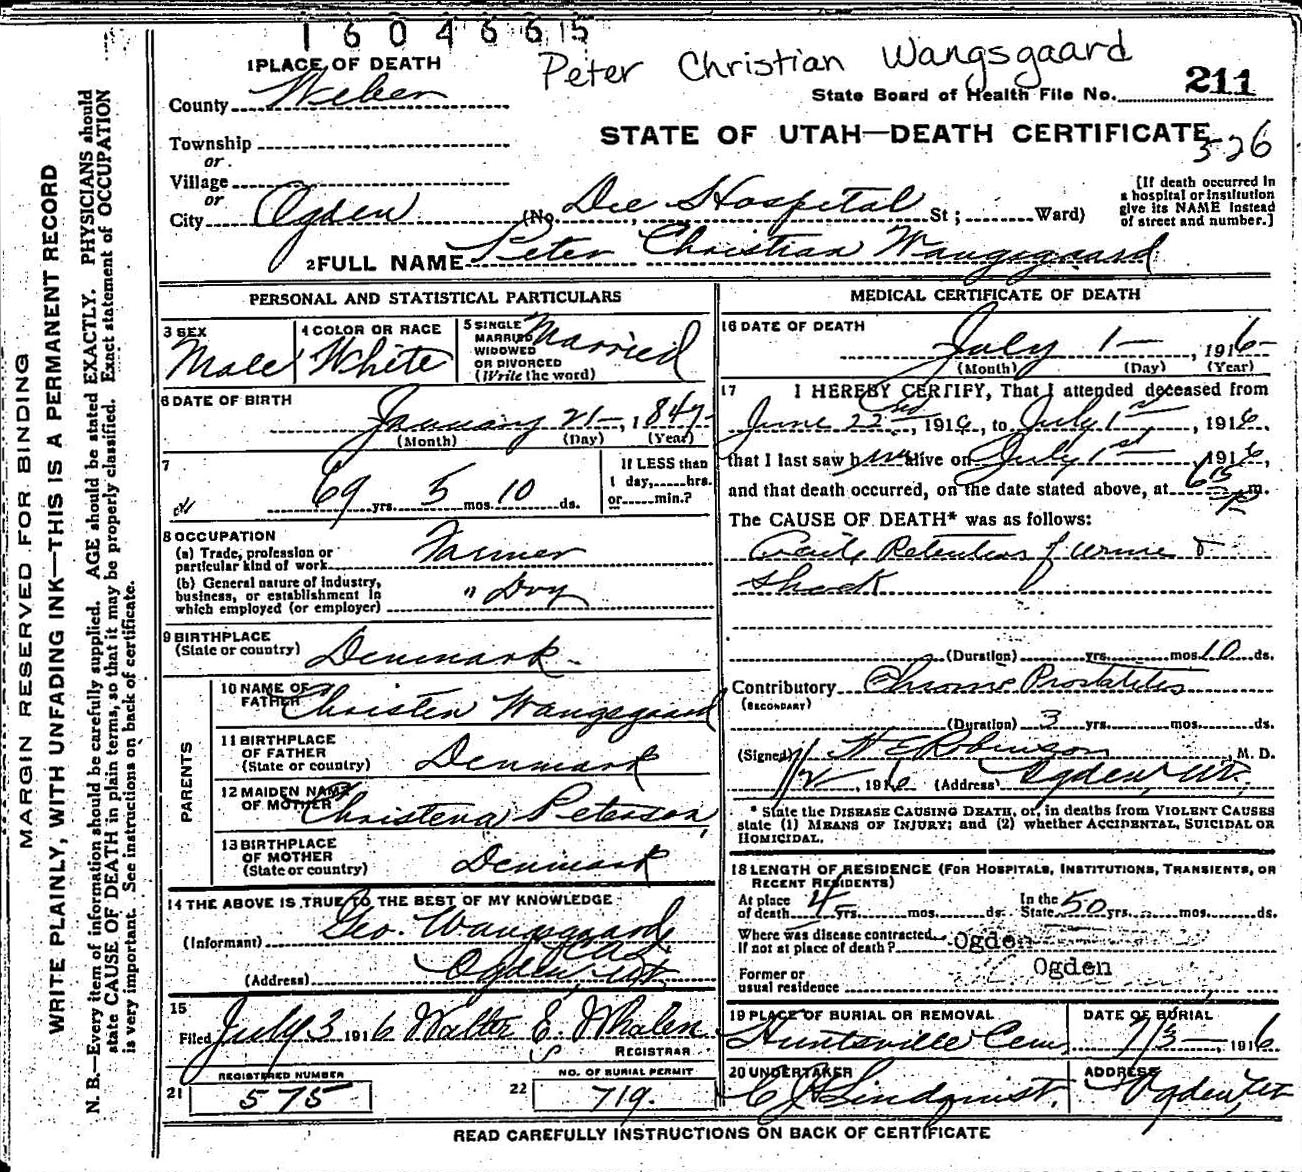 1604665
Peter Christian Wangsgaard
1 PLACE OF DEATH
County Weber
State Board of Health File No. 211
STATE OF UTAH—DEATH CERTIFICATE
526
Township
or
Village
or
City Ogden (No. Dee Hospital St; Ward)
[If death occurred in a hospital or institution give its NAME instead of street and number.]
2 FULL NAME Peter Christian Wangsgaard
PERSONAL AND STATISTICAL PARTICULARS
3 SEX Male
4 COLOR OR RACE White
5 SINGLE MARRIED WIDOWED OR DIVORCED (Write the word) Married
6 DATE OF BIRTH
January 21—, 1847
(Month) (Day) (Year)
7
69 yrs. 5 mos. 10 ds.
If LESS than 1 day, hrs. or min.?
8 OCCUPATION
(a) Trade, profession or particular kind of work Farmer
(b) General nature of industry, business, or establishment in which employed (or employer) " Dry
9 BIRTHPLACE (State or country) Denmark
PARENTS
10 NAME OF FATHER Christen Wangsgaard
11 BIRTHPLACE OF FATHER (State or country) Denmark
12 MAIDEN NAME OF MOTHER Christena Peterson
13 BIRTHPLACE OF MOTHER (State or country) Denmark
14 THE ABOVE IS TRUE TO THE BEST OF MY KNOWLEDGE
(Informant) Geo. Wangsgaard
(Address) Ogden, Ut
15
Filed July 3 1916 Walter E. Whalen
REGISTRAR
21 REGISTERED NUMBER 575
22 NO. OF BURIAL PERMIT 719.
MEDICAL CERTIFICATE OF DEATH
16 DATE OF DEATH
July 1—, 1916
(Month) (Day) (Year)
17 I HEREBY CERTIFY, That I attended deceased from
June 22nd, 1916, to July 1st, 1916,
that I last saw him alive on July 1st, 1916,
and that death occurred, on the date stated above, at 6 15 P m.
The CAUSE OF DEATH* was as follows:
Retention of urine &
Shock
(Duration) yrs. mos. 10 ds.
Contributory Chronic Prostatitis
(SECONDARY)
(Duration) 3 yrs. mos. ds.
(Signed) H E Robinson M. D.
7/2, 1916 (Address) Ogden, Ut.
* State the DISEASE CAUSING DEATH, or, in deaths from VIOLENT CAUSES
state (1) MEANS OF INJURY; and (2) whether ACCIDENTAL, SUICIDAL OR
HOMICIDAL.
18 LENGTH OF RESIDENCE (FOR HOSPITALS, INSTITUTIONS, TRANSIENTS, OR
RECENT RESIDENTS)
At place of death 4 yrs. mos. ds. In the State 50 yrs. mos. ds.
Where was disease contracted if not at place of death? Ogden
Former or usual residence Ogden
19 PLACE OF BURIAL OR REMOVAL Huntsville Cem
DATE OF BURIAL 7/3—, 1916
20 UNDERTAKER C J Lindquist.
ADDRESS Ogden Ut
READ CAREFULLY INSTRUCTIONS ON BACK OF CERTIFICATE
MARGIN RESERVED FOR BINDING
WRITE PLAINLY, WITH UNFADING INK—THIS IS A PERMANENT RECORD
N. B.—Every item of information should be carefully supplied. AGE should be stated EXACTLY. PHYSICIANS should
state CAUSE OF DEATH in plain terms, so that it may be properly classified. Exact statement of OCCUPATION
is very important. See instructions on back of certificate.